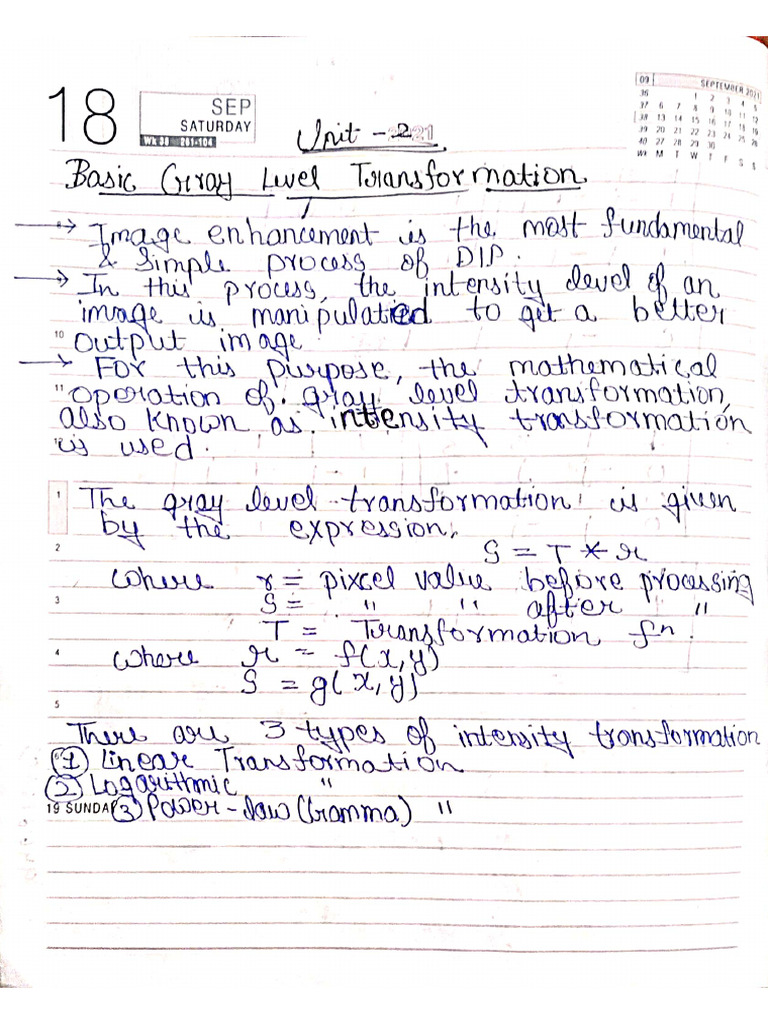 18
SEP
SATURDAY
Wk 38 261-104
09 SEPTEMBER 2021
36 1 2 3 4 5
37 6 7 8 9 10 11 12
38 13 14 15 16 17 18 19
39 20 21 22 23 24 25 26
40 27 28 29 30
Wk M T W T F S S
Unit - 2
Basic Gray Level Transformation
→ Image enhancement is the most fundamental
& simple process of DIP.
→ In this process, the intensity level of an
image is manipulated to get a better
10 output image
→ For this purpose, the mathematical
11 operation of gray level transformation,
also known as intensity transformation
12 is used.
1 The gray level transformation is given
by the expression,
2 S = T * r
where r = pixcel value before processing
3 S = " " after "
T = Transformation fn.
4 where r = f(x,y)
S = g(x,y)
5
There are 3 types of intensity transformation
(1) Linear Transformation
(2) Logarithmic "
19 SUNDA (3) Power-law (Gamma) "